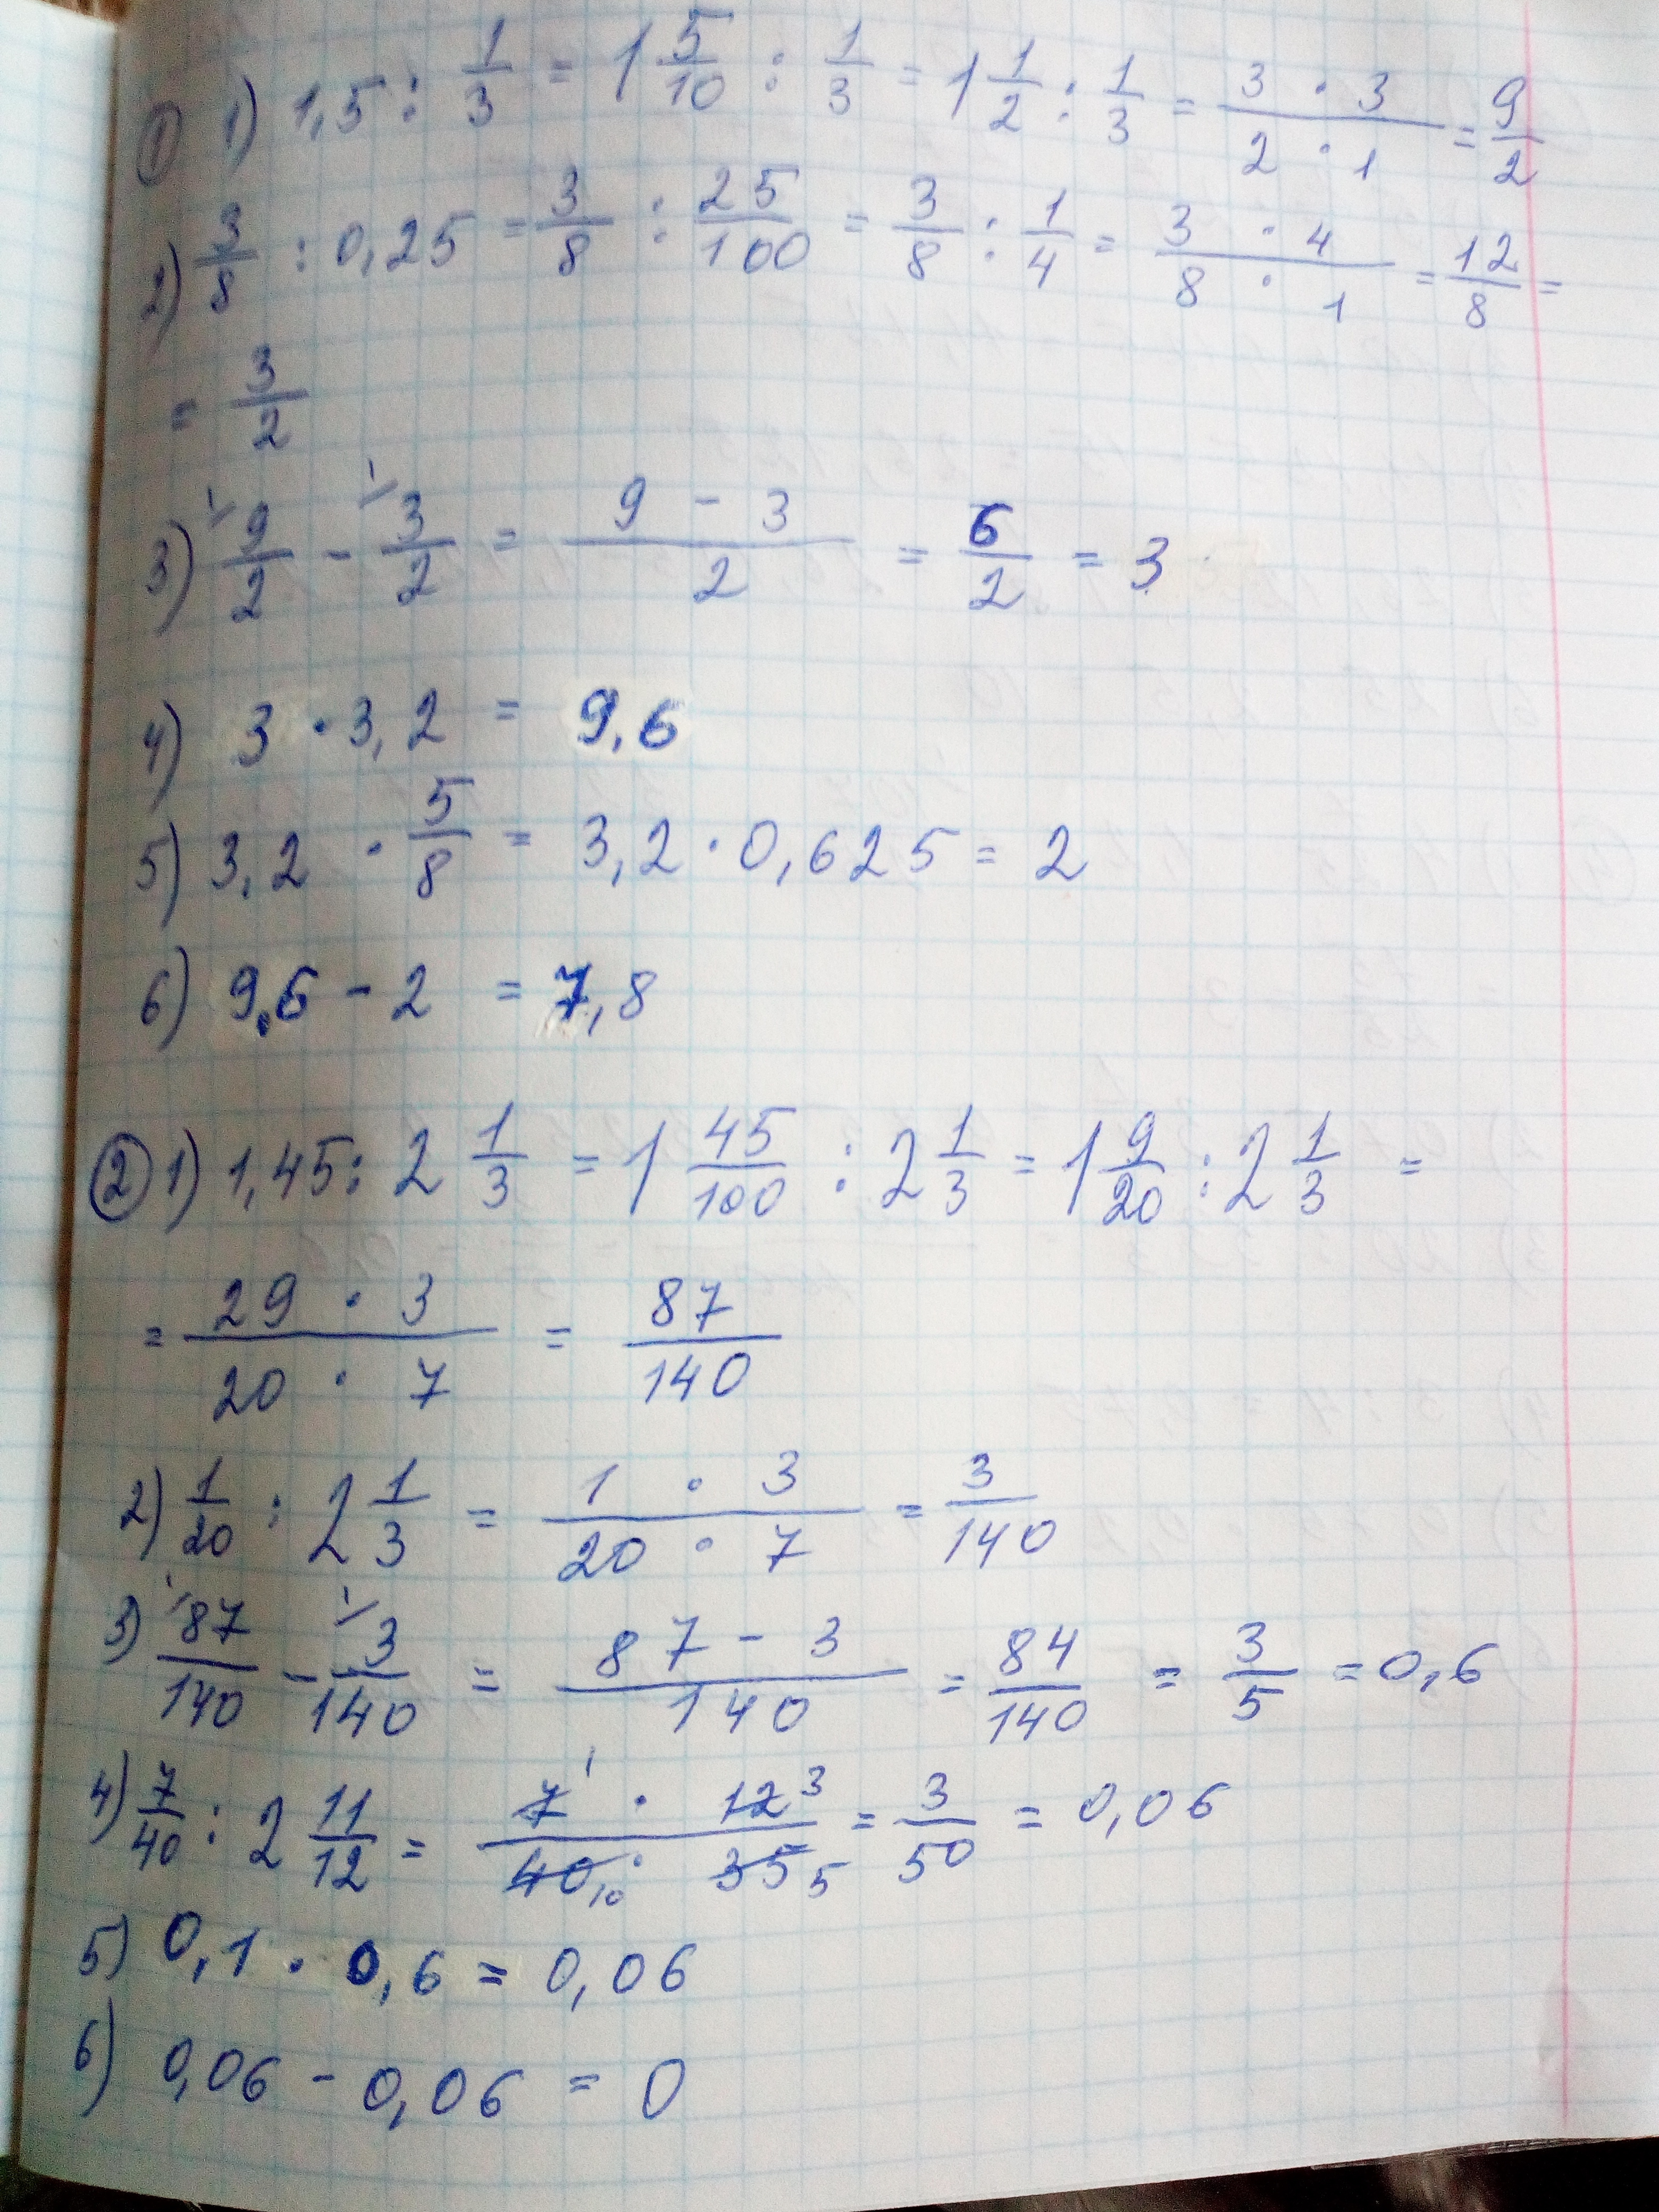 ① 1) 1,5 : 1/3 = 1 5/10 : 1/3 = 1 1/2 : 1/3 = (3 · 3)/(2 · 1) = 9/2
2) 3/8 : 0,25 = 3/8 : 25/100 = 3/8 : 1/4 = (3 · 4)/(8 · 1) = 12/8 =
= 3/2
3) 9/2 - 3/2 = (9 - 3)/2 = 6/2 = 3
4) 3 · 3,2 = 9,6
5) 3,2 · 5/8 = 3,2 · 0,625 = 2
6) 9,6 - 2 = 7,8
② 1) 1,45 : 2 1/3 = 1 45/100 : 2 1/3 = 1 9/20 : 2 1/3 =
= (29 · 3)/(20 · 7) = 87/140
2) 1/20 : 2 1/3 = (1 · 3)/(20 · 7) = 3/140
3) 87/140 - 3/140 = (87 - 3)/140 = 84/140 = 3/5 = 0,6
4) 7/40 : 2 11/12 = (7 1 · 12 3)/(40 10 · 35 5) = 3/50 = 0,06
5) 0,1 · 0,6 = 0,06
6) 0,06 - 0,06 = 0